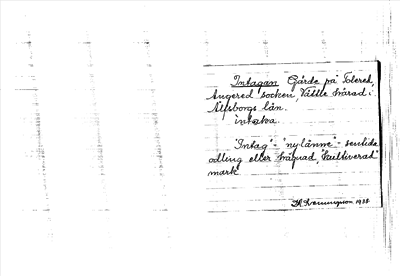 Intagan Gärde på Tolered,
Angered socken, Vättle härad i
Älvsborgs län.
intaka
"Intag" - "nylänne" - sentida
odling eller hägnad, "kultiverad"
mark
1938